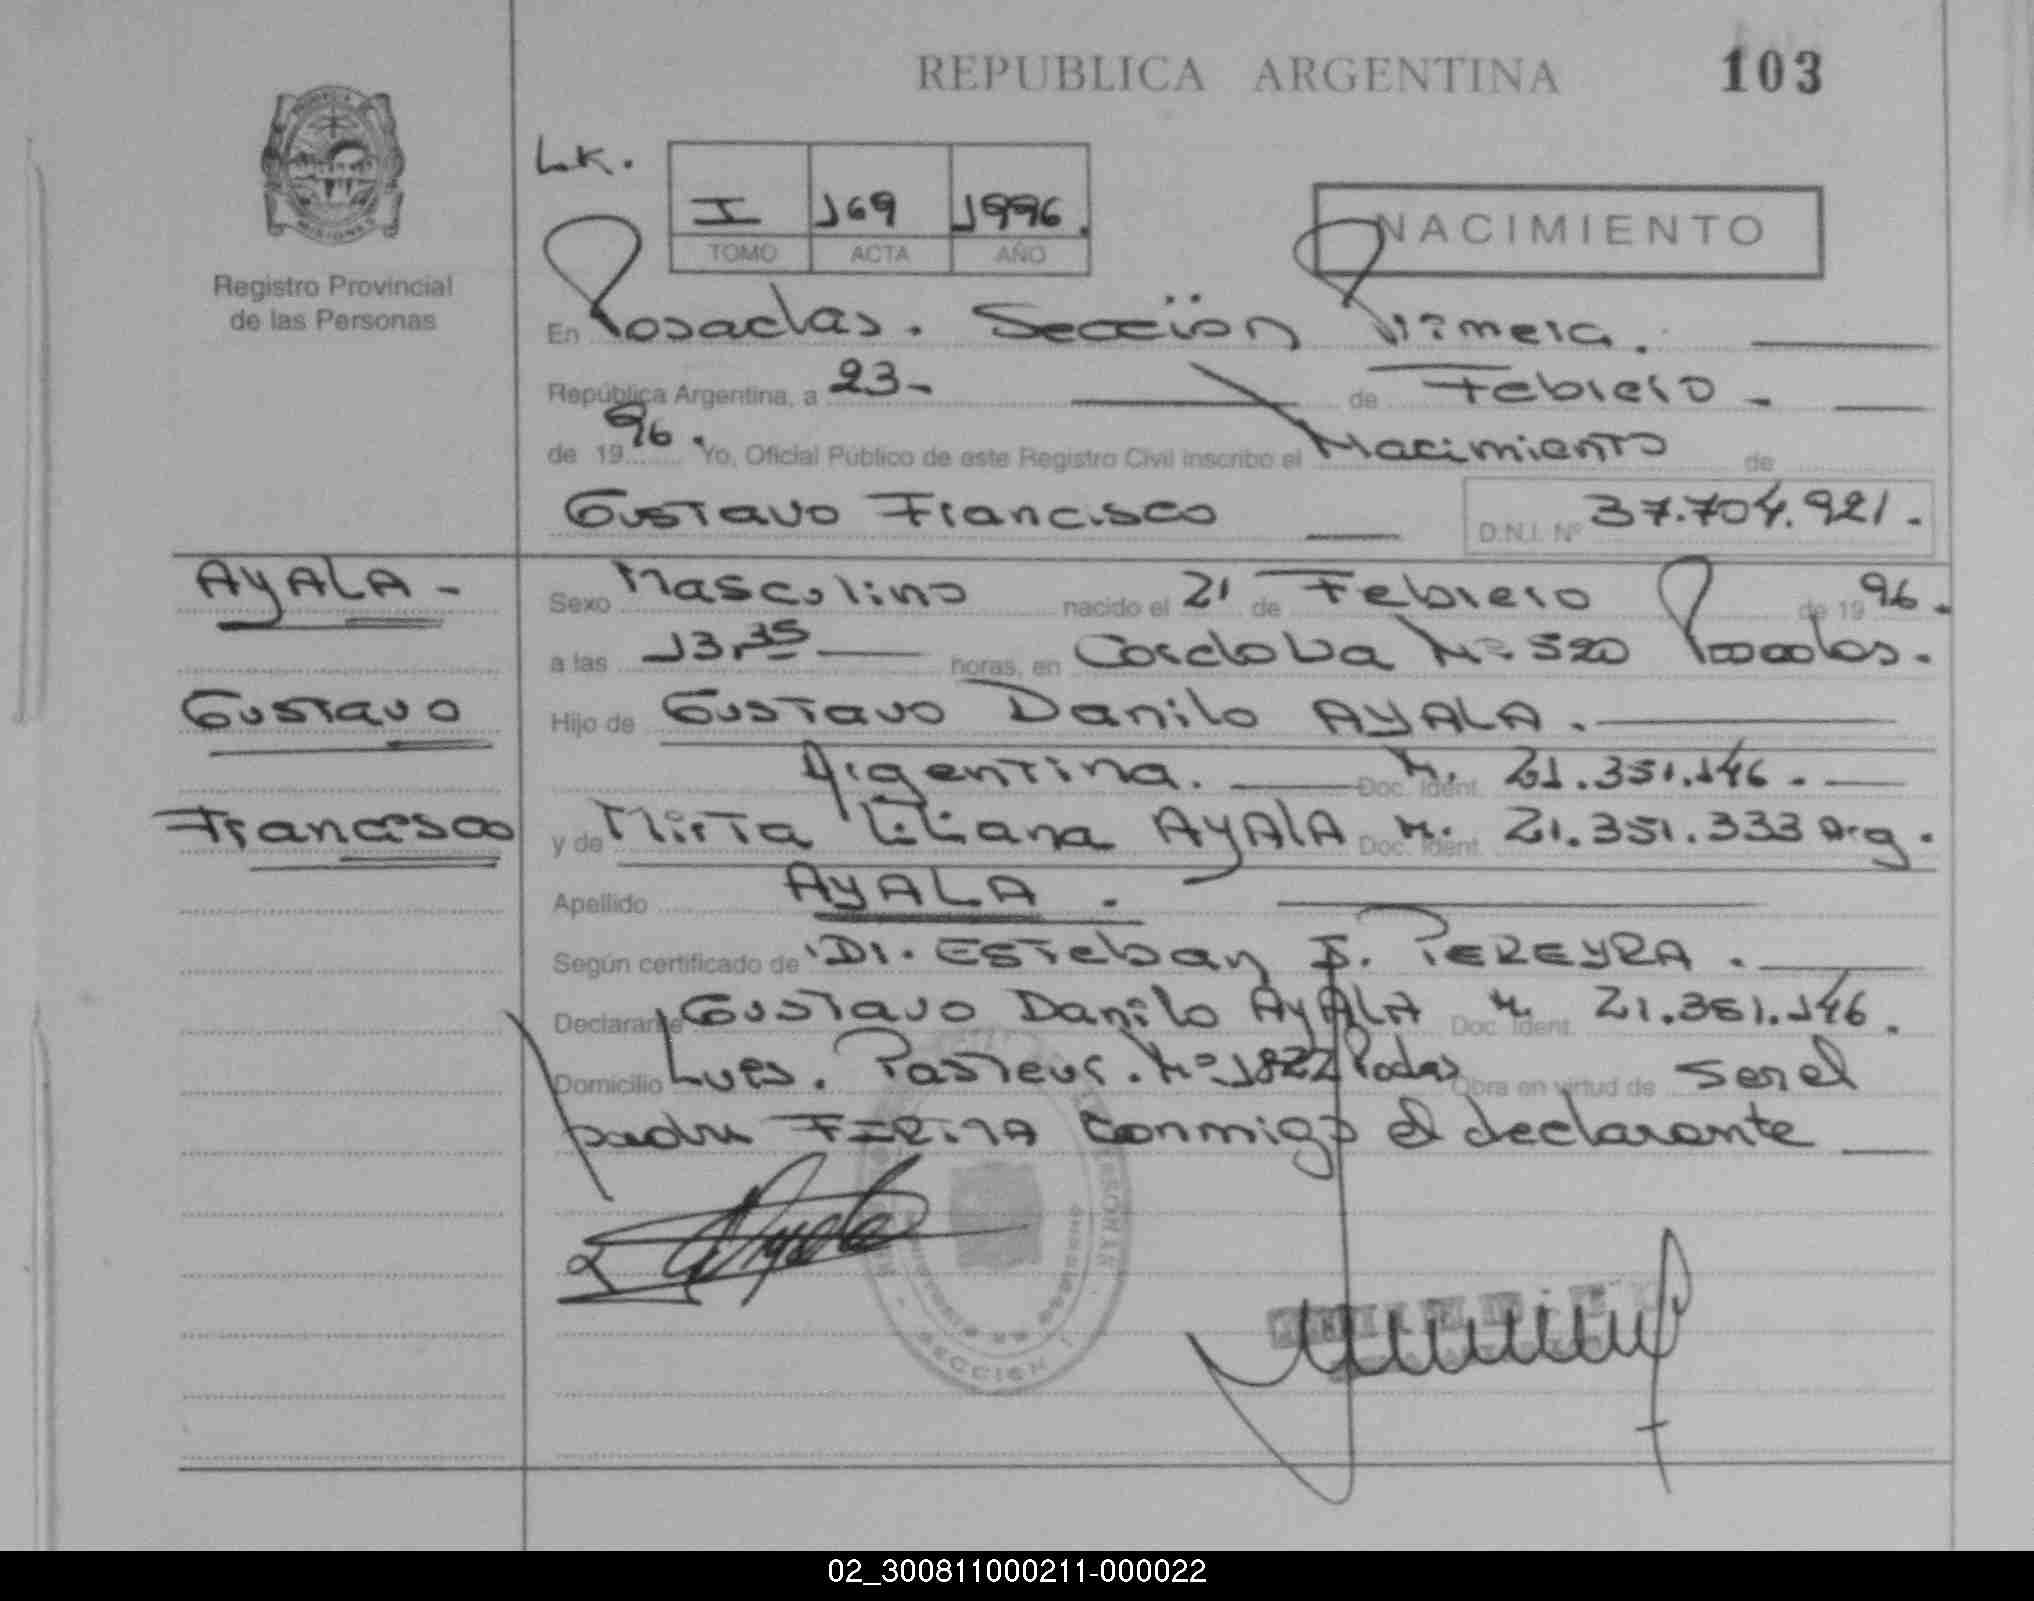 REPUBLICA ARGENTINA 103
PROVINCIA DE MISIONES
Registro Provincial
de las Personas
L.K.
I 169 1996.
TOMO ACTA AÑO
NACIMIENTO
En Posadas. Sección Primera.
República Argentina, a 23 - de Febrero -
de 1996. Yo, Oficial Público de este Registro Civil inscribo el Nacimiento de
Gustavo Francisco D.N.I. Nº 37.704.921.
AYALA -
Gustavo
Francisco
Sexo Masculino nacido el 21 de Febrero de 1996.
a las 13,35 horas, en Cordoba Nº 520 Posadas.
Hijo de Gustavo Danilo AYALA.
Argentina. Doc. Ident. N. 21.351.146.
y de Mirta Liliana AYALA Doc. Ident. N. 21.351.333 Arg.
Apellido AYALA.
Según certificado de Dr. Esteban J. PEREYRA.
Declarante Gustavo Danilo AYALA Doc. Ident. N. 21.351.146.
Domicilio Lues. Pasteur. Nº 1822 Podas Obra en virtud de ser el
padre FIRMA conmigo el declarante
SECCION 1
02_300811000211-000022